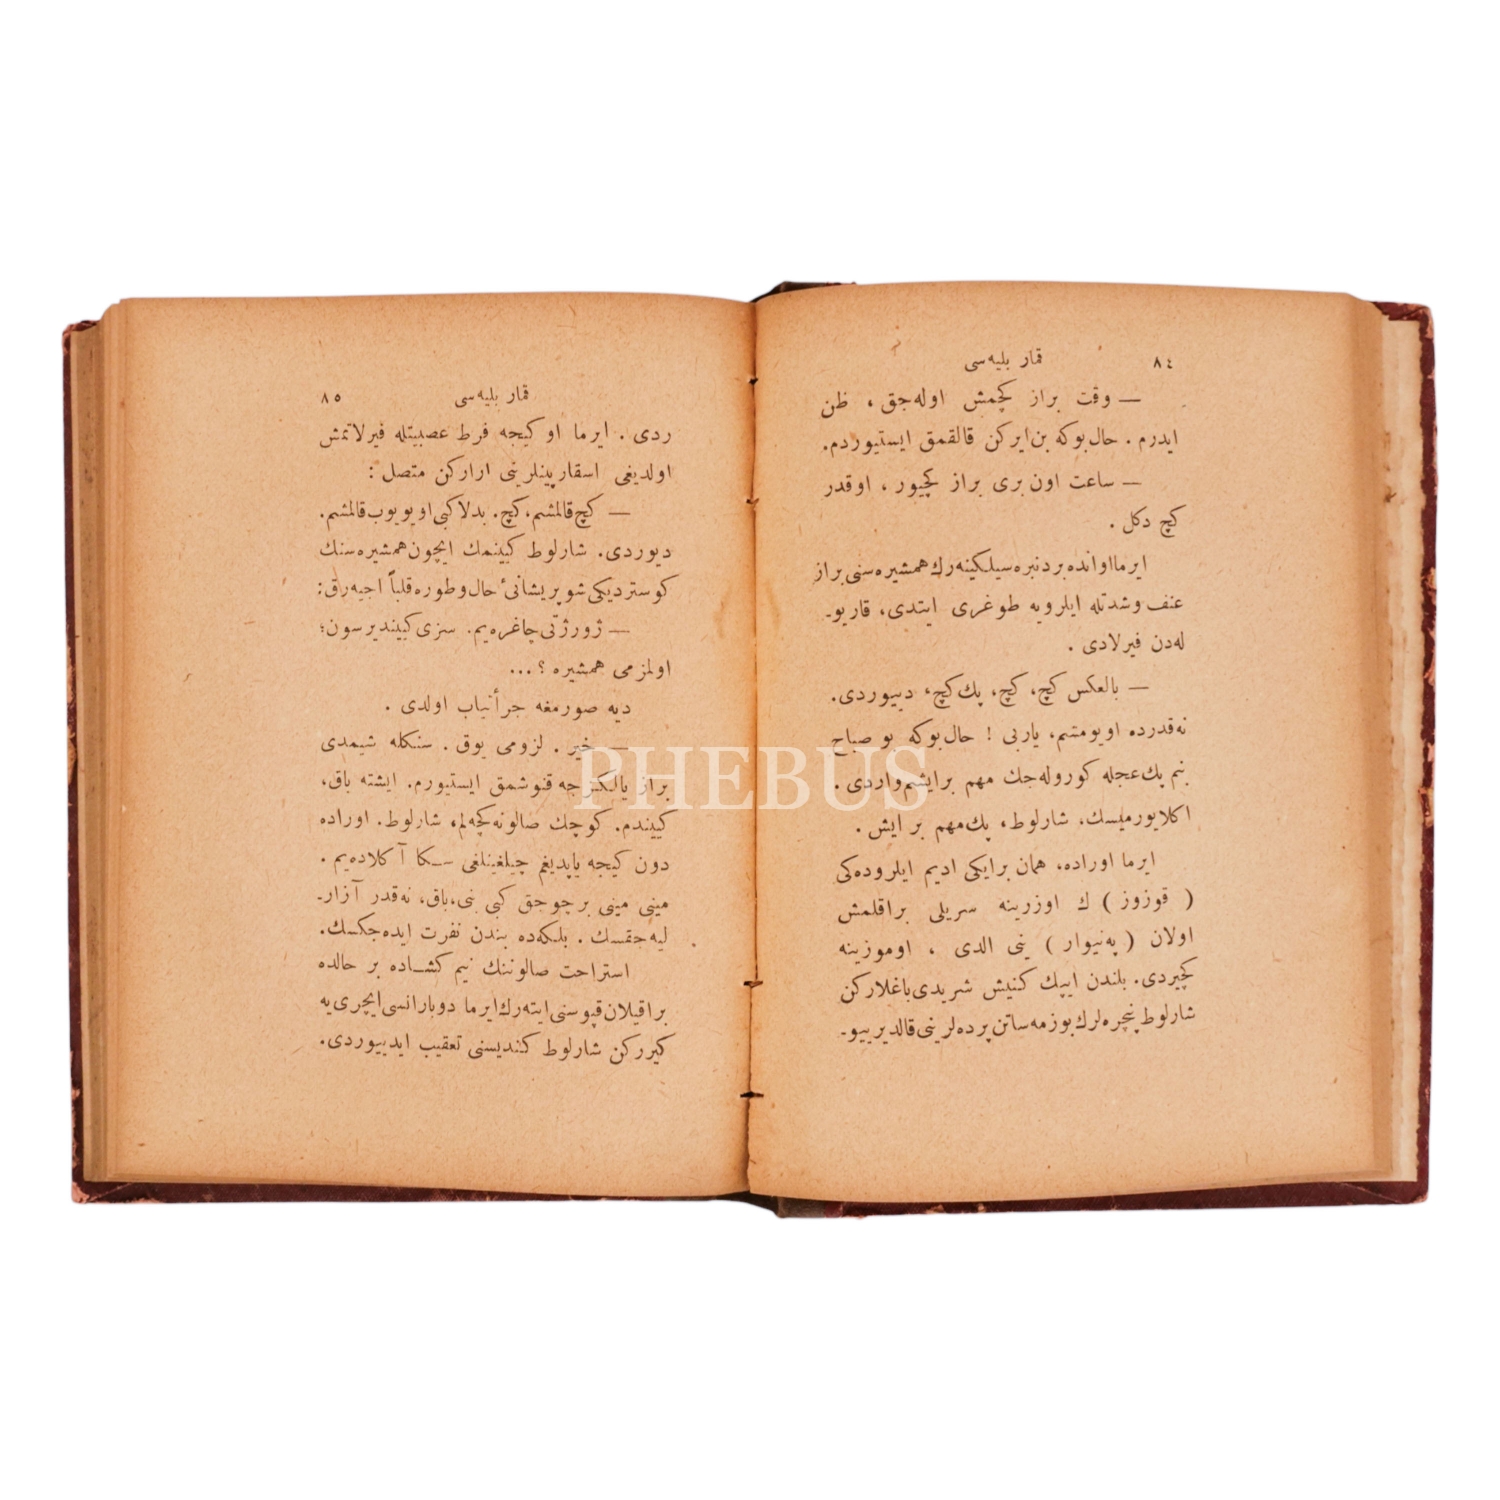 ٨٤ قمار بليه‌سی
— وقت براز كچمش اوله‌جق ، ظن
ايدرم . حال‌بوكه بن‌ايركن قالقمق ايستيوردم.
— ساعت اون بری براز كچيور ، اوقدر
كچ دكل .
ايرما اوانده بردنبره سيلكينه‌رك همشيره‌سنی براز
عنف وشدتله ايلرويه طوغری ايتدی، قاريو-
له‌دن فيرلادی .
— بالعكس كچ، كچ، پك كچ، ديیوردی.
نه‌قدرده اويومشم، ياربی ! حال‌بوكه بو صباح
بنم پك عجله كوروله‌جك مهم برايشم واردی .
اكلايورميسك، شارلوط، پك مهم بر ايش .
ايرما اوراده، همان برايكی اديم ايلروده‌كی
( قوزوز ) ك اوزرينه سريلی براقلمش
اولان ( په‌نيوار ) ينی الدی ، اوموزينه
كچيردی. بلندن ايپك كنيش شريدی باغلاركن
شارلوط پنجره‌لرك بوزمه ساتن پرده‌لرينی قالديرييو-
قمار بليه‌سی ٨٥
ردی . ايرما او كيجه فرط عصبيتله فيرلاتمش
اولديغی اسقارپينلرينی اراركن متصل :
— كچ قالمشم، كچ. بدلا كبی اويويوب قالمشم.
ديوردی. شارلوط كيينمك ايچون همشيره‌سنك
كوسترديكی شو پريشانیٔ حال وطوره قلباً اجيه‌رق:
— ژورژتی چاغره‌يم. سزی كييندیرسون؛
اولمزمی همشيره ؟ ...
ديه صورمغه جرأتياب اولدی .
— خير . لزومی يوق . سنكله شيمدی
براز يالكزجه قنوشمق ايستيورم. ايشته باق،
كييندم. كوچك صالونه كچه‌لم، شارلوط. اوراده
دون كيجه ياپديغم چيلغينلغی سكا آكلاده‌يم .
مينی مينی بر چوجق كبی بنی، باق، نه‌قدر آزار-
ليه‌جقسك . بلكه‌ده بندن نفرت ايده‌جكسك.
استراحت صالوننك نيم كشاده بر حالده
براقيلان قپوسنی ايته‌رك ايرما دوبارانسی ايچری‌يه
كيرركن شارلوط كنديسنی تعقيب ايدييوردی.
PHEBUS